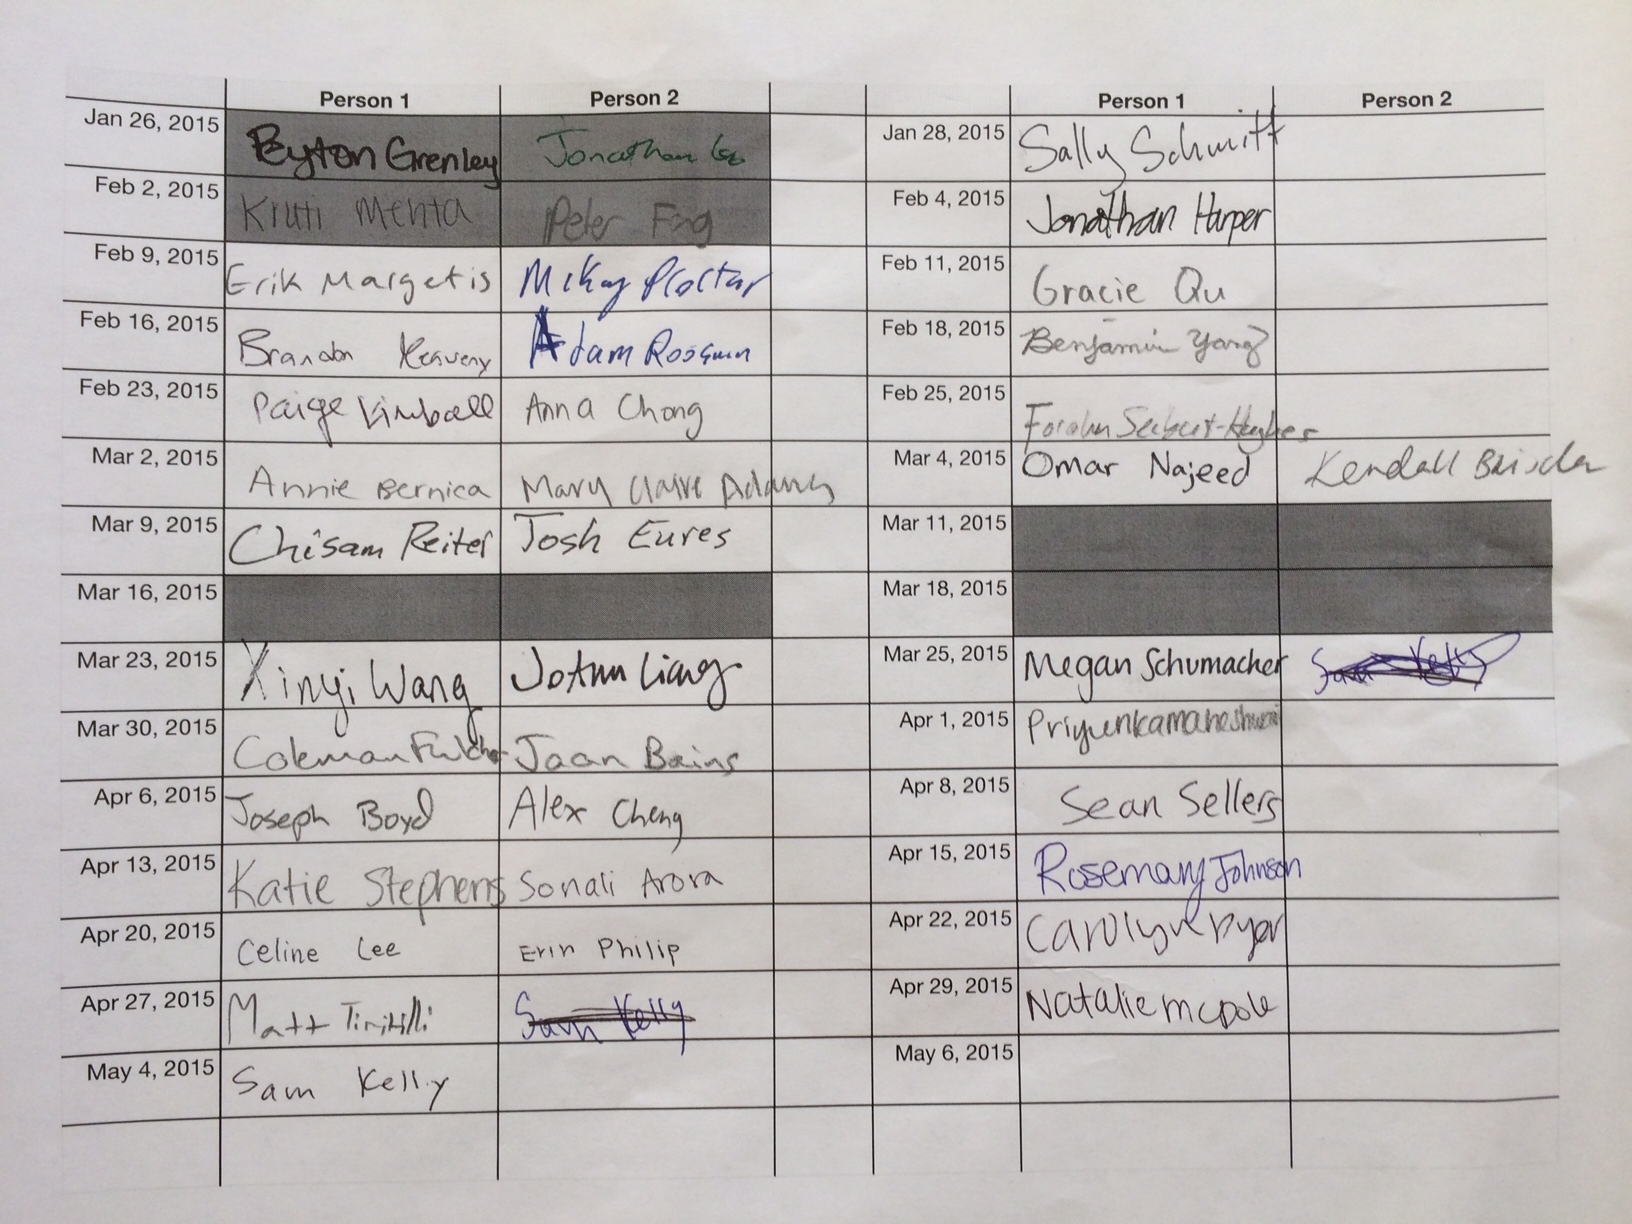 Person 1 Person 2 Person 1 Person 2
Jan 26, 2015 Peyton Grenley Jonathan Lee Jan 28, 2015 Sally Schmitt
Feb 2, 2015 Kruti Mehta Peter Feb 4, 2015 Jonathan Harper
Feb 9, 2015 Erik Margetis McKay Proctor Feb 11, 2015 Gracie Qu
Feb 16, 2015 Brandon Keaveny Adam Feb 18, 2015 Benjamin Yang
Feb 23, 2015 Paige Kimball Anna Chong Feb 25, 2015
Mar 2, 2015 Annie Bernica Mary Claire Adams Mar 4, 2015 Omar Najeed Kendall
Mar 9, 2015 Chisam Reiter Josh Eures Mar 11, 2015
Mar 16, 2015 Mar 18, 2015
Mar 23, 2015 Xinyi Wang JoAnn Liang Mar 25, 2015 Megan Schumacher Sam Kelly
Mar 30, 2015 Coleman Fulcher Jaan Bains Apr 1, 2015 Priyankamaheshwari
Apr 6, 2015 Joseph Boyd Alex Cheng Apr 8, 2015 Sean Sellers
Apr 13, 2015 Katie Stephens Sonali Arora Apr 15, 2015 Rosemary Johnson
Apr 20, 2015 Celine Lee Erin Philip Apr 22, 2015 Carolyn Dyer
Apr 27, 2015 Matt Sam Kelly Apr 29, 2015 Natalie
May 4, 2015 Sam Kelly May 6, 2015